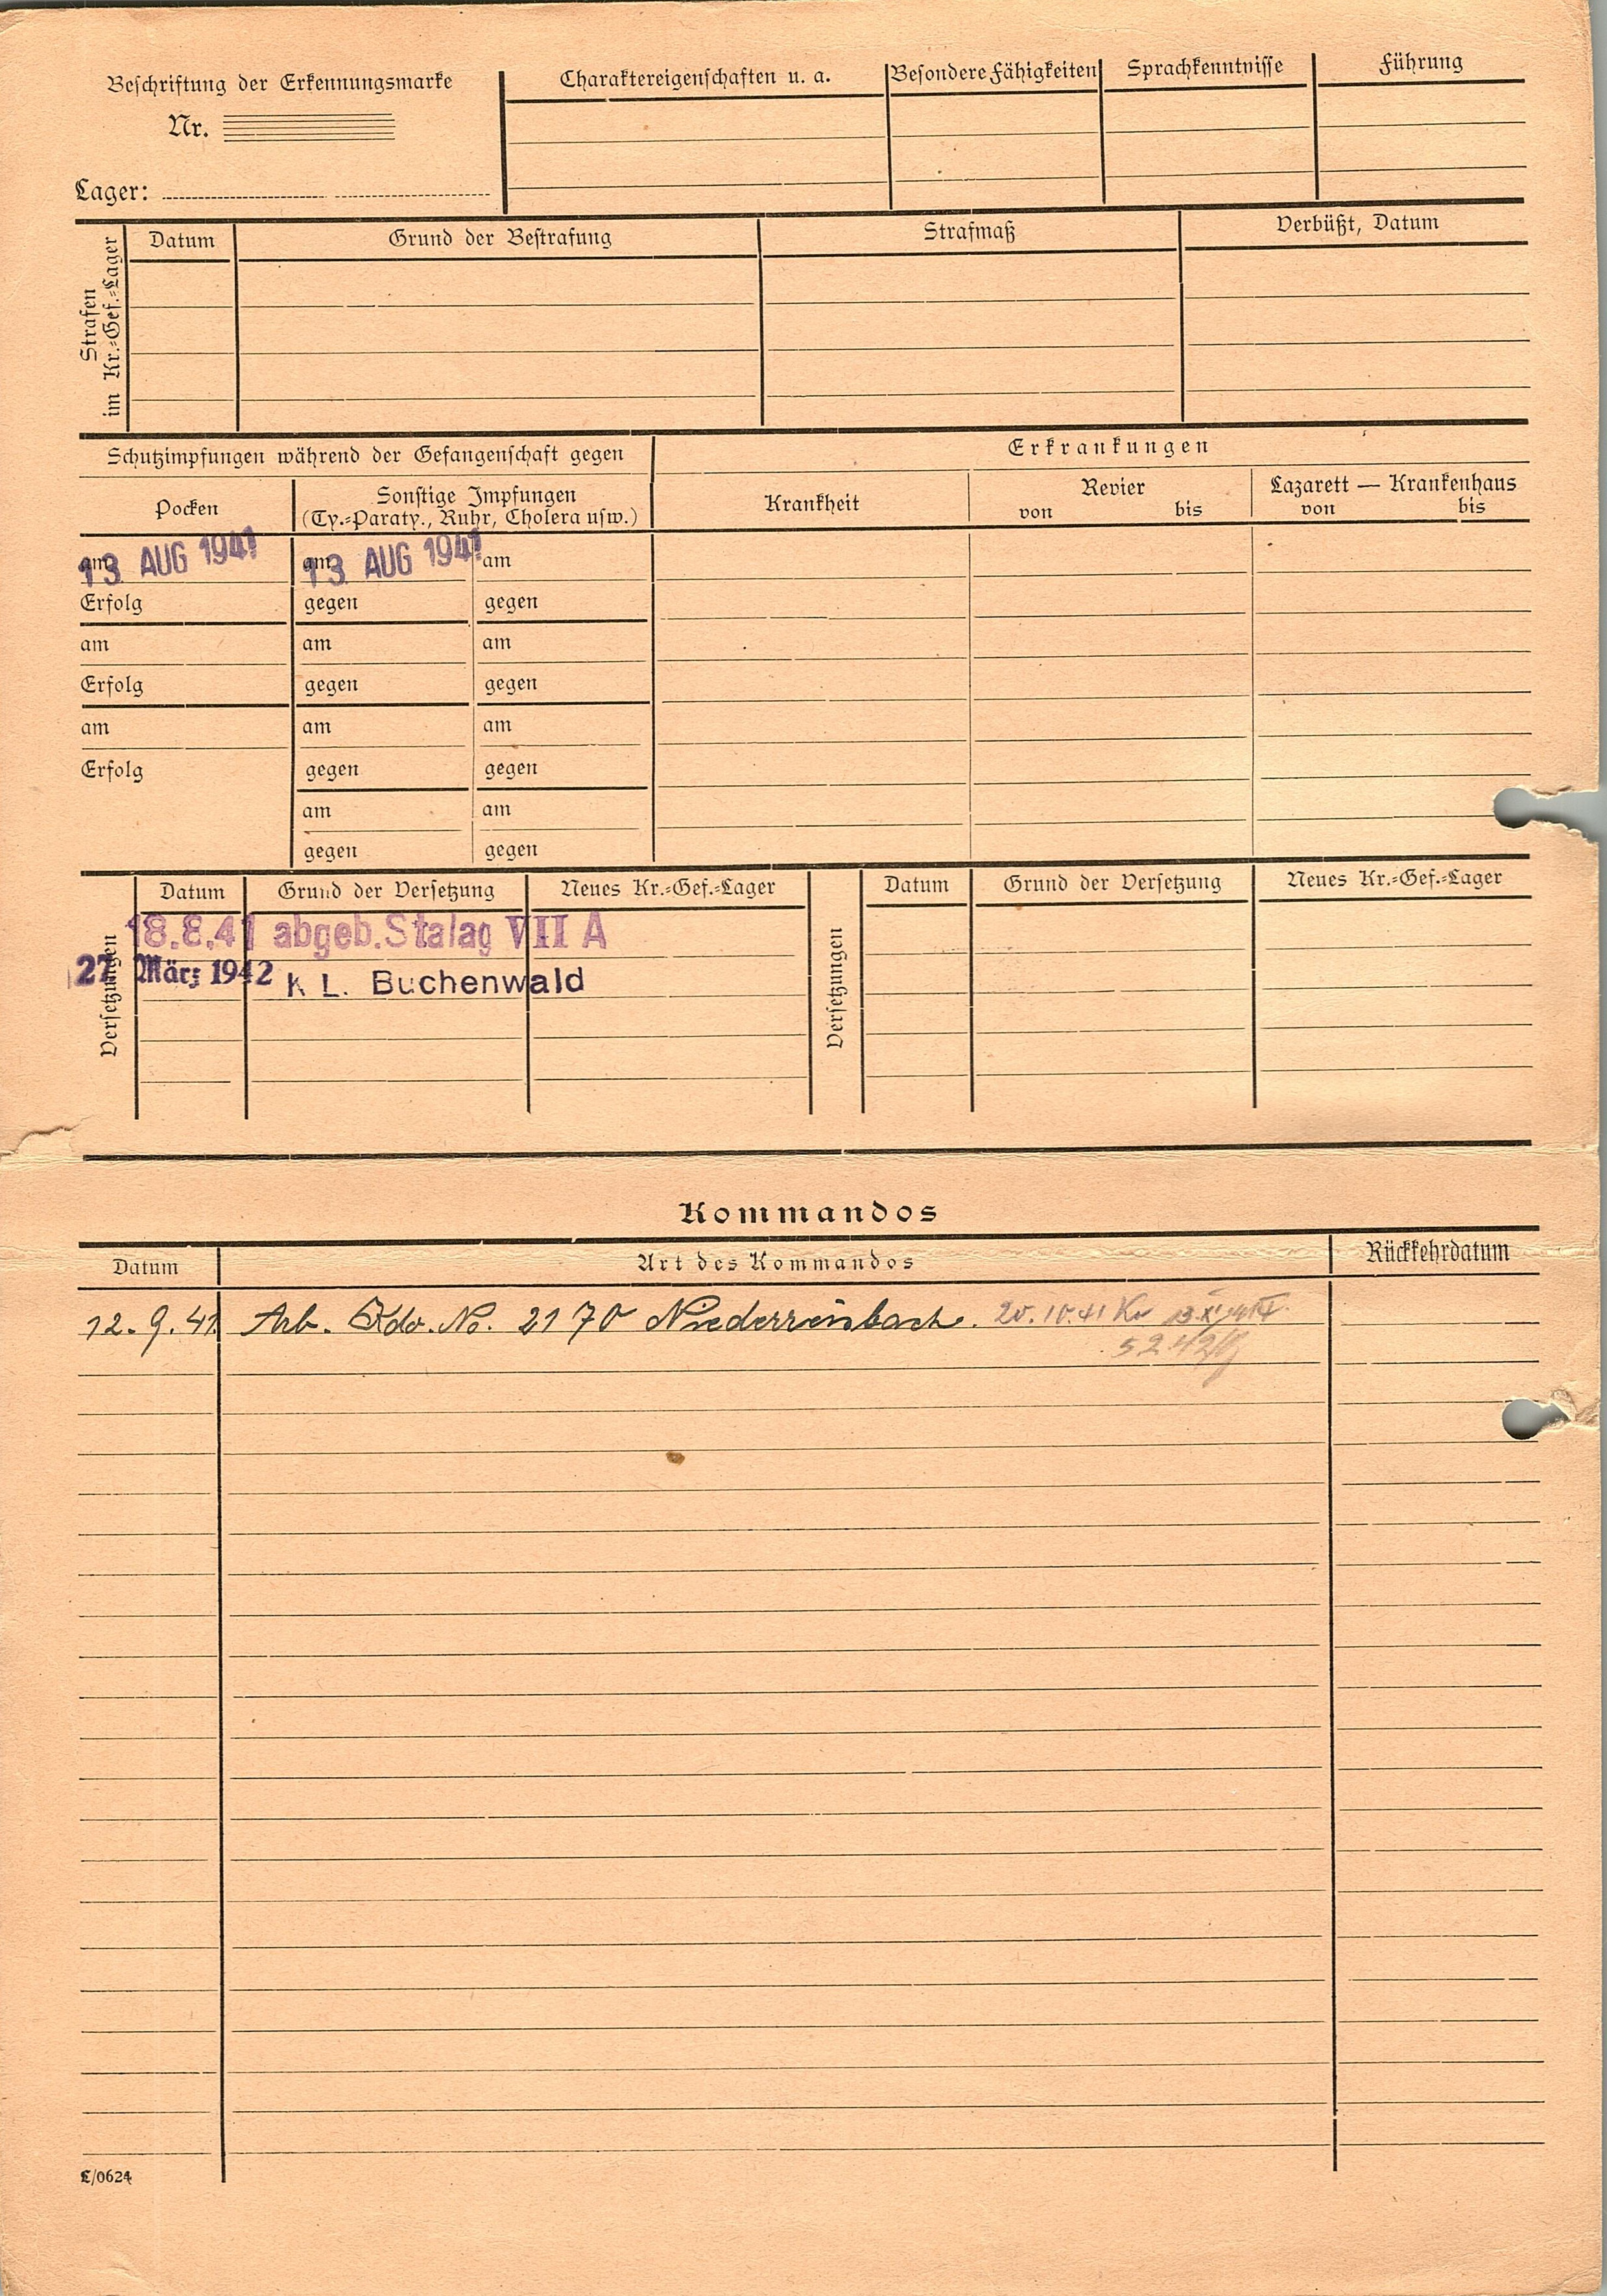 Beschriftung der Erkennungsmarke
Nr.
Lager:
Charaktereigenschaften u. a.
Besondere Fähigkeiten
Sprachkenntnisse
Führung
Strafen
im Kr.=Gef.=Lager
Datum
Grund der Bestrafung
Strafmaß
Verbüßt, Datum
Schutzimpfungen während der Gefangenschaft gegen
Erkrankungen
Pocken
Sonstige Impfungen
(Ty.=Paraty., Ruhr, Cholera usw.)
Krankheit
Revier
von bis
Lazarett — Krankenhaus
von bis
am 13. AUG 1941 am 13. AUG 1941 am
Erfolg gegen gegen
am am am
Erfolg gegen gegen
am am am
Erfolg gegen gegen
am am
gegen gegen
Versetzungen
Datum Grund der Versetzung Neues Kr.=Gef.=Lager
18.8.41 abgeb. Stalag VII A
27. März 1942 K L. Buchenwald
Versetzungen
Datum Grund der Versetzung Neues Kr.=Gef.=Lager
Kommandos
Datum Art des Kommandos Rückkehrdatum
12.9.41 Arb. Kdo. No. 2170 20.10.41
5.2.42
L/0624